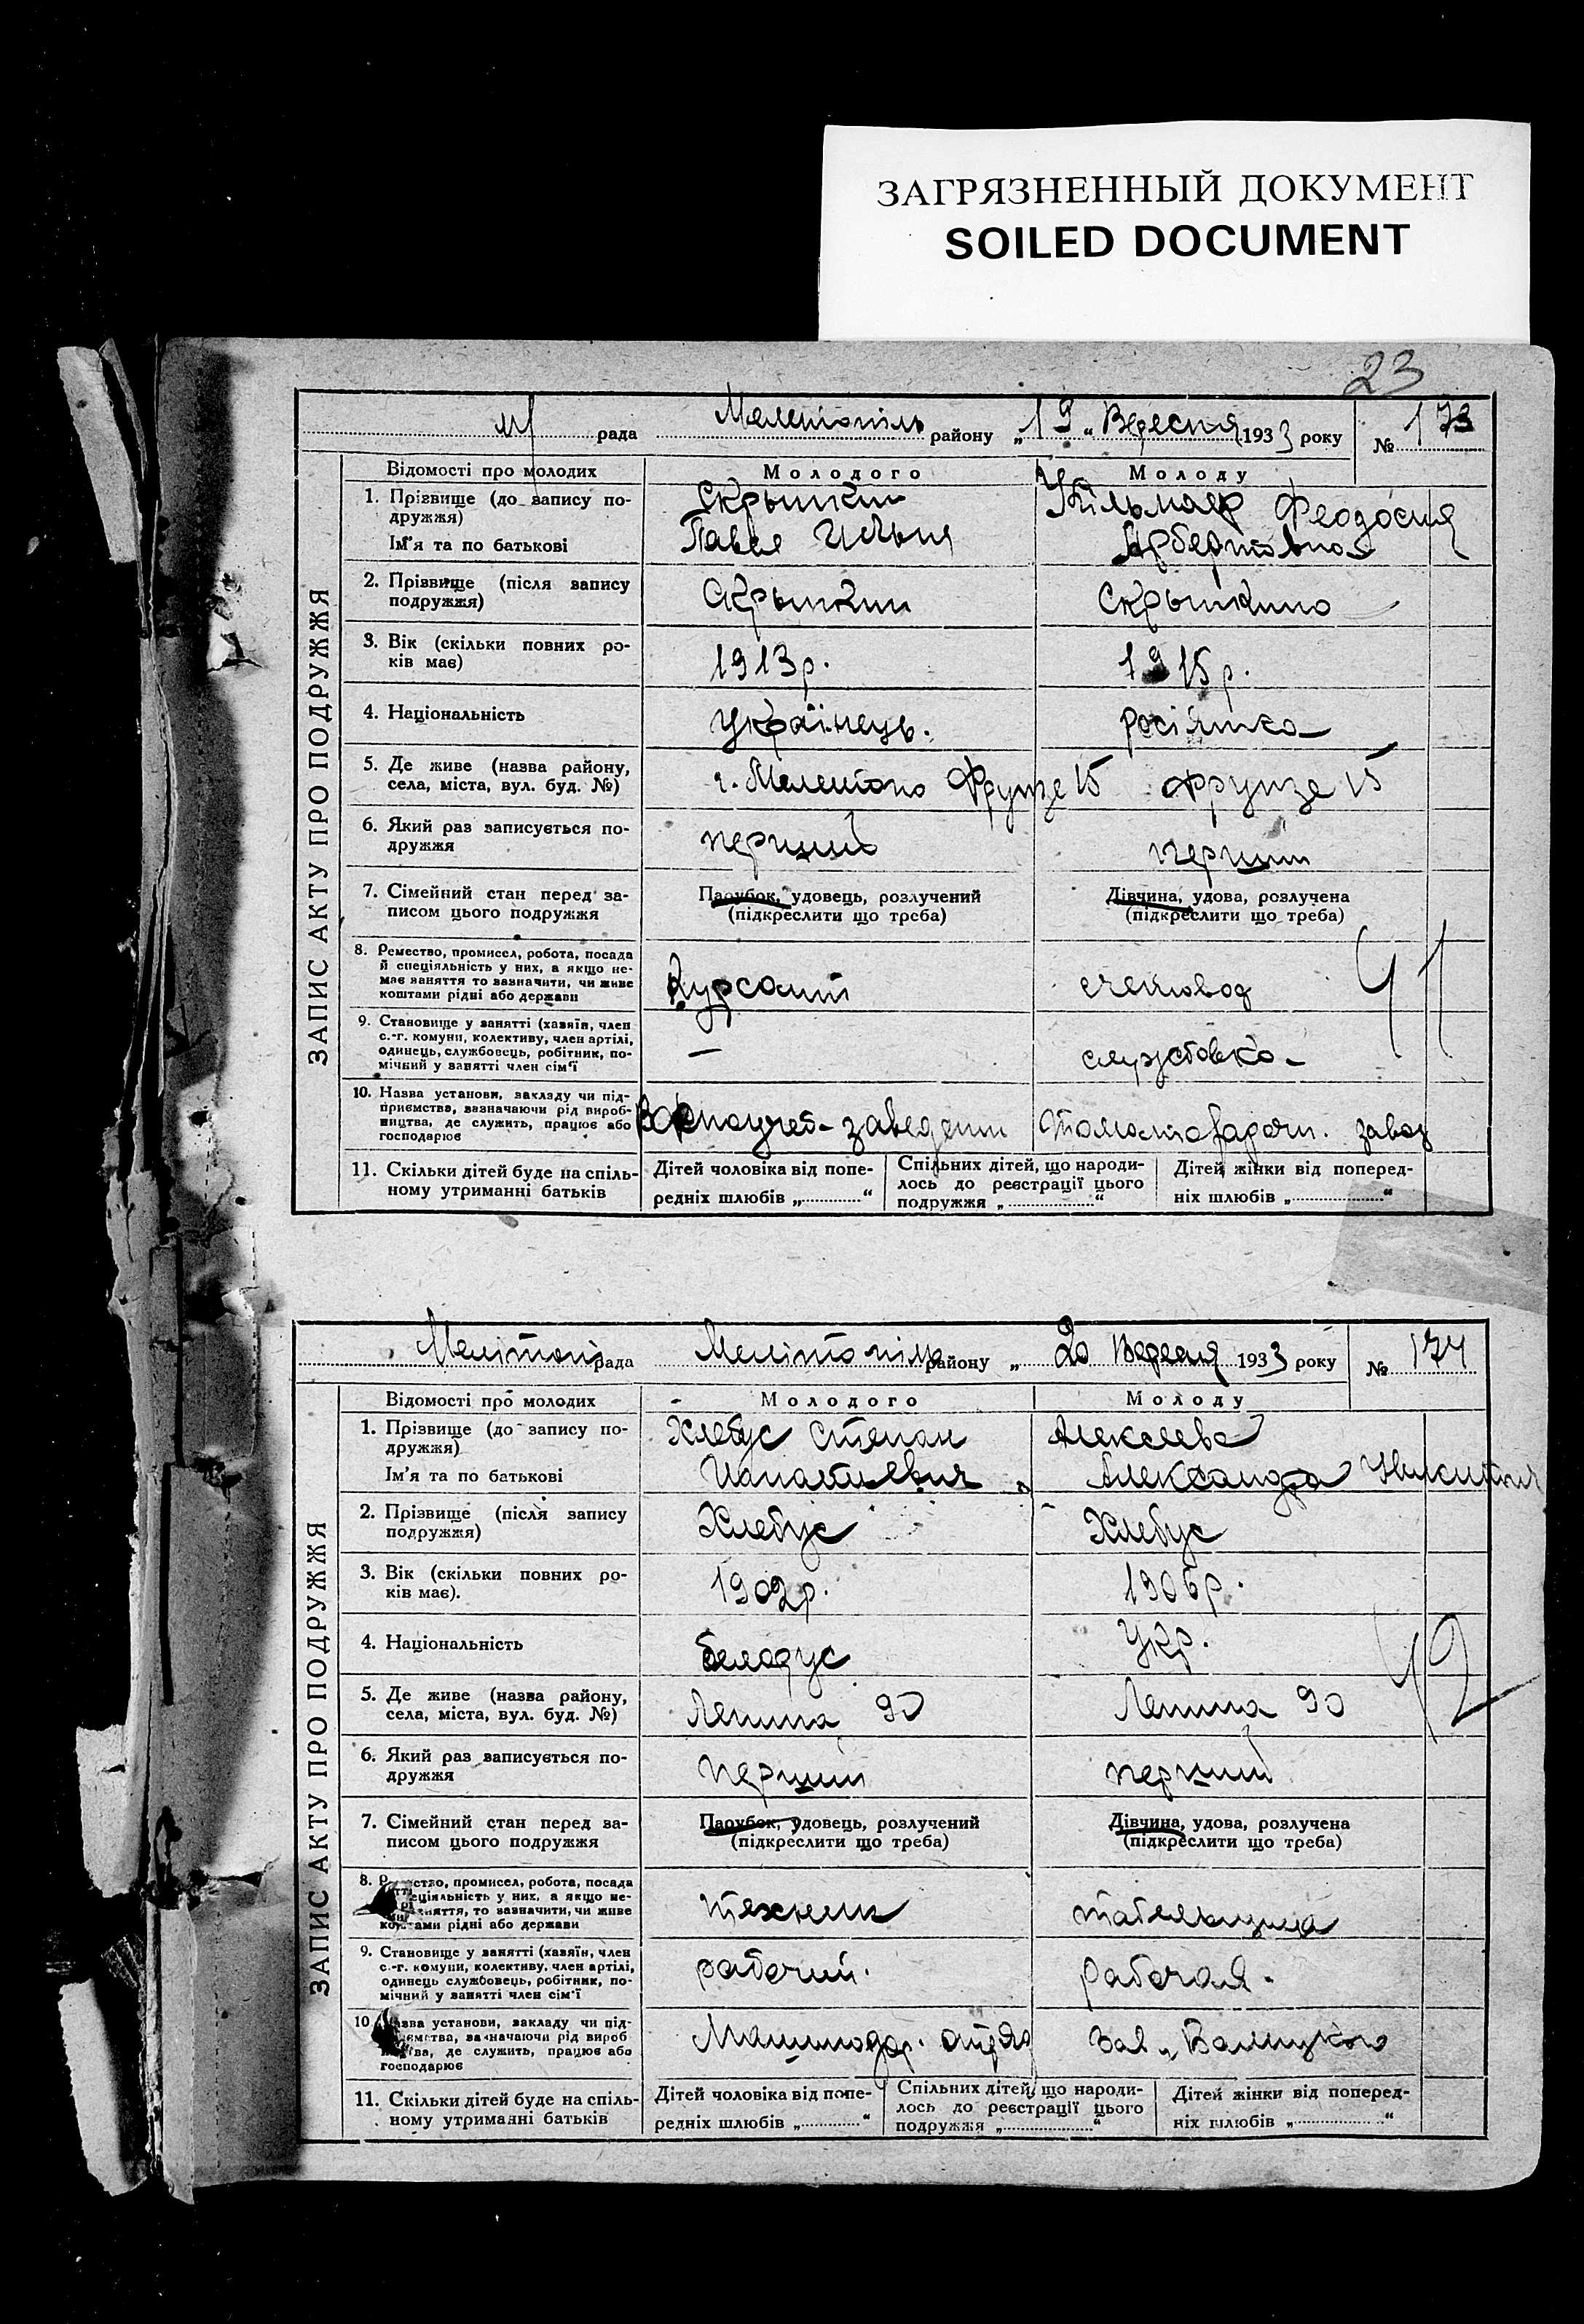 ЗАГРЯЗНЕННЫЙ ДОКУМЕНТ
SOILED DOCUMENT
23
ЗАПИС АКТУ ПРО ПОДРУЖЖЯ
рада Мелетопіль району „19„ Вересня 1933 року № 173
Відомості про молодих Молодого Молоду
1. Прізвище (до запису по-
дружжя) Скрыпкин Феодосия
Ім'я та по батькові Павел
2. Прізвище (після запису
подружжя) Скрыпкин Скрыпкино
3. Вік (скільки повних ро-
ків має) 1913р. 1915р.
4. Національність Українець. росіянка
5. Де живе (назва району,
села, міста, вул. буд. №) г. Мелетопо Фрунзе 15 Фрунзе 15
6. Який раз записується по-
дружжя перший перший
7. Сімейний стан перед за-
писом цього подружжя
Парубок, удовець, розлучений
(підкреслити що треба)
Дівчина, удова, розлучена
(підкреслити що треба)
8. Ремество, промисел, робота, посада
й специяльність у них, а якщо не-
має заняття то зазначити, чи живе
коштами рідні або держави
Курсант счетовод 41
9. Становище у занятті (хазяїн, член
с.-г. комуни, колективу, член артілі,
одинець, службовець, робітник, по-
мічний у занятті член сім'ї
— службовко
10. Назва установи, закладу чи під-
приємства, зазначаючи рід вироб-
ництва, де служить, працює або
господарює
заведении завод
11. Скільки дітей буде на спіль-
ному утриманні батьків
Дітей чоловіка від попе-
редніх шлюбів „ “
Спільних дітей, що народи-
лось до реєстрації цього
подружжя „ “
Дітей жінки від поперед-
ніх шлюбів „ “
ЗАПИС АКТУ ПРО ПОДРУЖЖЯ
Мелітопіль рада Мелітопіль району „ 20 Вересня 1933 року № 174
Відомості про молодих Молодого Молоду
1. Прізвище (до запису по-
дружжя) Хлебус Степан Алексеева
Ім'я та по батькові Александра
2. Прізвище (після запису
подружжя) Хлебус Хлебус
3. Вік (скільки повних ро-
ків має). 1902р. 1906р.
4. Національність белорус Укр.
42
5. Де живе (назва району,
села, міста, вул. буд. №) Ленина 90 Ленина 90
6. Який раз записується по-
дружжя перший перший
7. Сімейний стан перед за-
писом цього подружжя
Парубок, удовець, розлучений
(підкреслити що треба)
Дівчина, удова, розлучена
(підкреслити що треба)
8. промисел, робота, посада
у них, а якщо не-
то зазначити, чи живе
рідні або держави
технік табельщица
9. Становище у занятті (хазяїн, член
с.-г. комуни, колективу, член артілі,
одинець службовець, робітник, по-
мічний у занятті член сім'ї
рабочий. рабочая.
10. установи, закладу чи під-
зазначаючи рід вироб
де служить, працює або
господарює
зав.
11. Скільки дітей буде на спіль-
ному утриманні батьків
Дітей чоловіка від попе-
редніх шлюбів „ “
Спільних дітей, що народи-
лось до реєстрації цього
подружжя „ “
Дітей жінки від поперед-
ніх шлюбів „ “